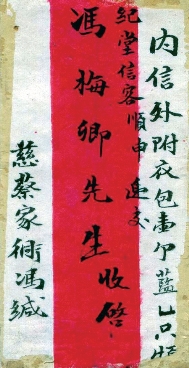 内信外附衣包壹個藍乙只
紀堂信客順申遞交
馮梅卿先生收啓
慈蔡家衖馮緘